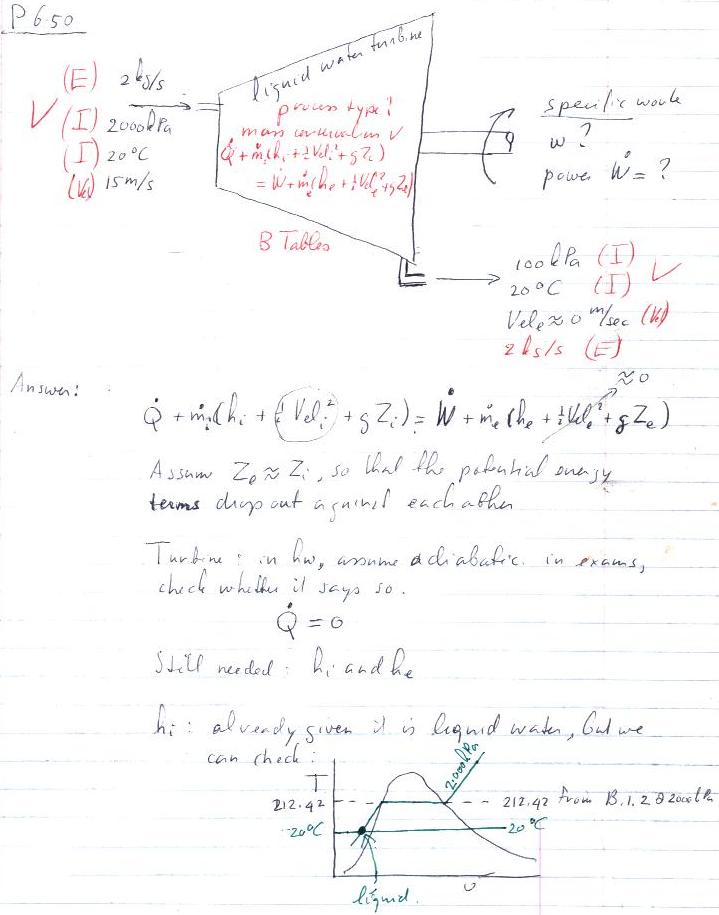 P 6.50
liquid water turbine
(E) 2 kg/s
(I) 2000 kPa
(I) 20°C
(Vel) 15 m/s
process type?
mass conservation ✓
Q̇ + ṁᵢ(hᵢ + ½Velᵢ² + gZᵢ)
= Ẇ + ṁₑ(hₑ + ½Velₑ² + gZₑ)
B Tables
specific work
w ?
power Ẇ = ?
100 kPa (I)
20°C (I)
Velₑ ≈ 0 m/sec (Vel)
2 kg/s (E)
Answer:
≈ 0
Q̇ + ṁᵢ(hᵢ + ½ Velᵢ² + gZᵢ) = Ẇ + ṁₑ(hₑ + ½Velₑ² + gZₑ)
Assume Zₑ ≈ Zᵢ, so that the potential energy
terms drop out against each other
Turbine: in hw, assume adiabatic. in exams,
check whether it says so.
Q̇ = 0
Still needed: hᵢ and hₑ
hᵢ: already given it is liquid water, but we
can check:
T
2000 kPa
212.42
212.42 from B.1.2 @ 2000 kPa
20°C
20°C
v
liquid.